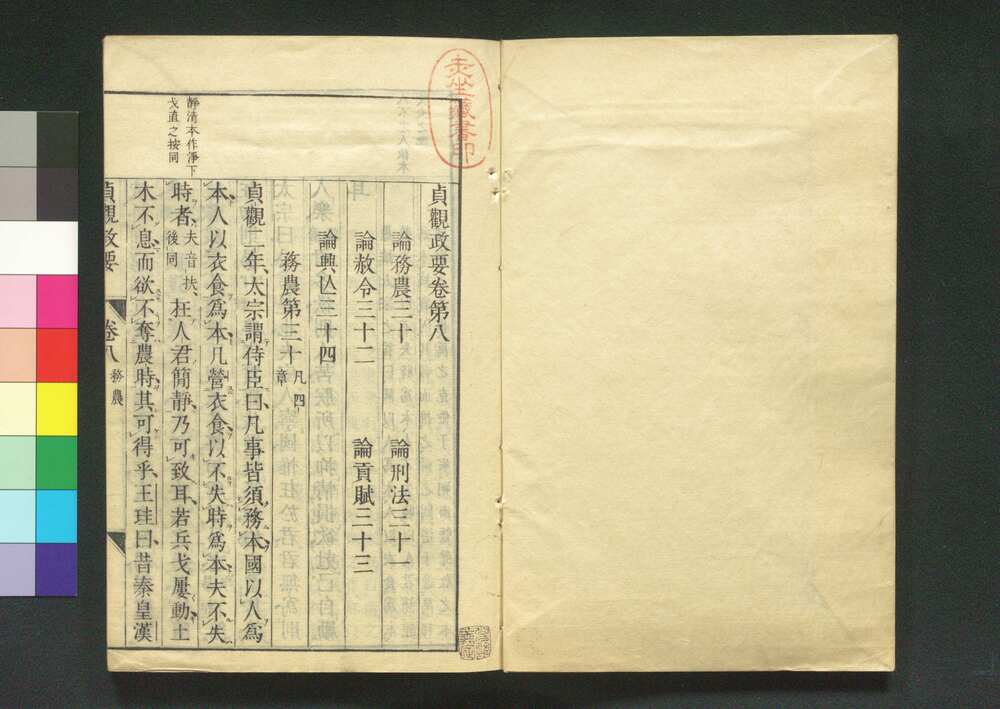 貞觀政要卷第八
論務農三十　論刑法三十一
論赦令三十二　論貢賦三十三
論興亾三十四
務農第三十凡四章
貞觀二年太宗謂侍臣曰凡事皆須務本國以人爲
本人以衣食爲本凡營衣食以不失時爲本夫不失
時者夫音扶後同在人君簡靜乃可致耳若兵戈屢動土
木不息而欲不奪農時其可得乎王珪曰昔秦皇漢
貞觀政要　卷八　務農
靜清本作淨下
戈直之按同
藏書印